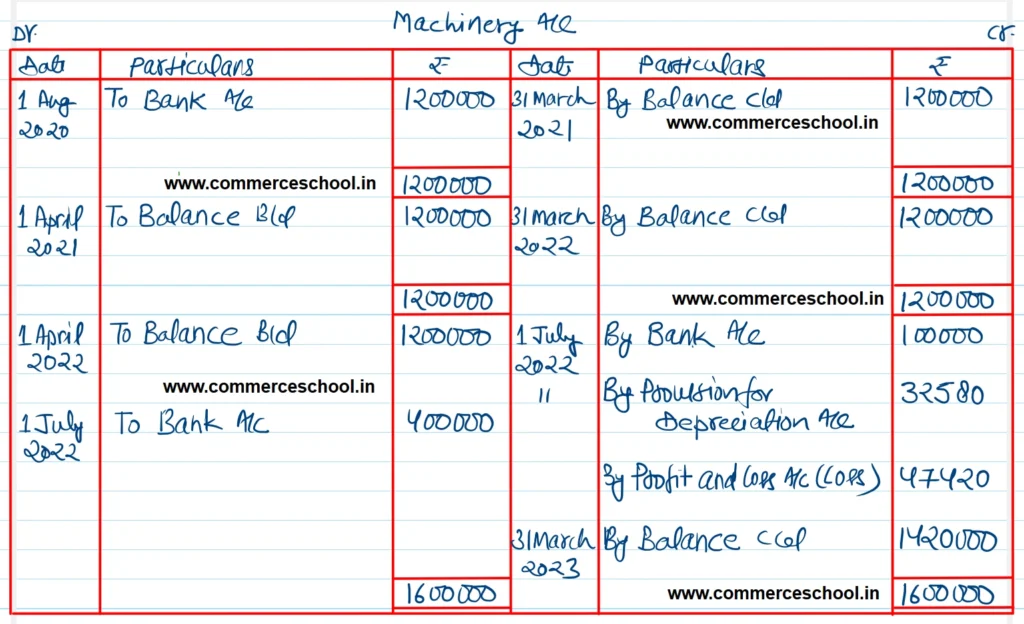 Machinery A/c
Dr. Cr.
Date Particulars ₹ Date Particulars ₹
1 Aug To Bank A/c 1200000 31 March By Balance c/d 1200000
2020 2021 www.commerceschool.in
www.commerceschool.in 1200000 1200000
1 April To Balance B/d 1200000 31 March By Balance C/d 1200000
2021 2022
1200000 www.commerceschool.in 1200000
1 April To Balance B/d 1200000 1 July By Bank A/c 100000
2022 2022
www.commerceschool.in " By Provision for 32580
1 July To Bank A/c 400000 Depreciation A/c
2022
By Profit and Loss A/c (Loss) 47420
31 March By Balance C/d 1420000
2023
1600000 www.commerceschool.in 1600000